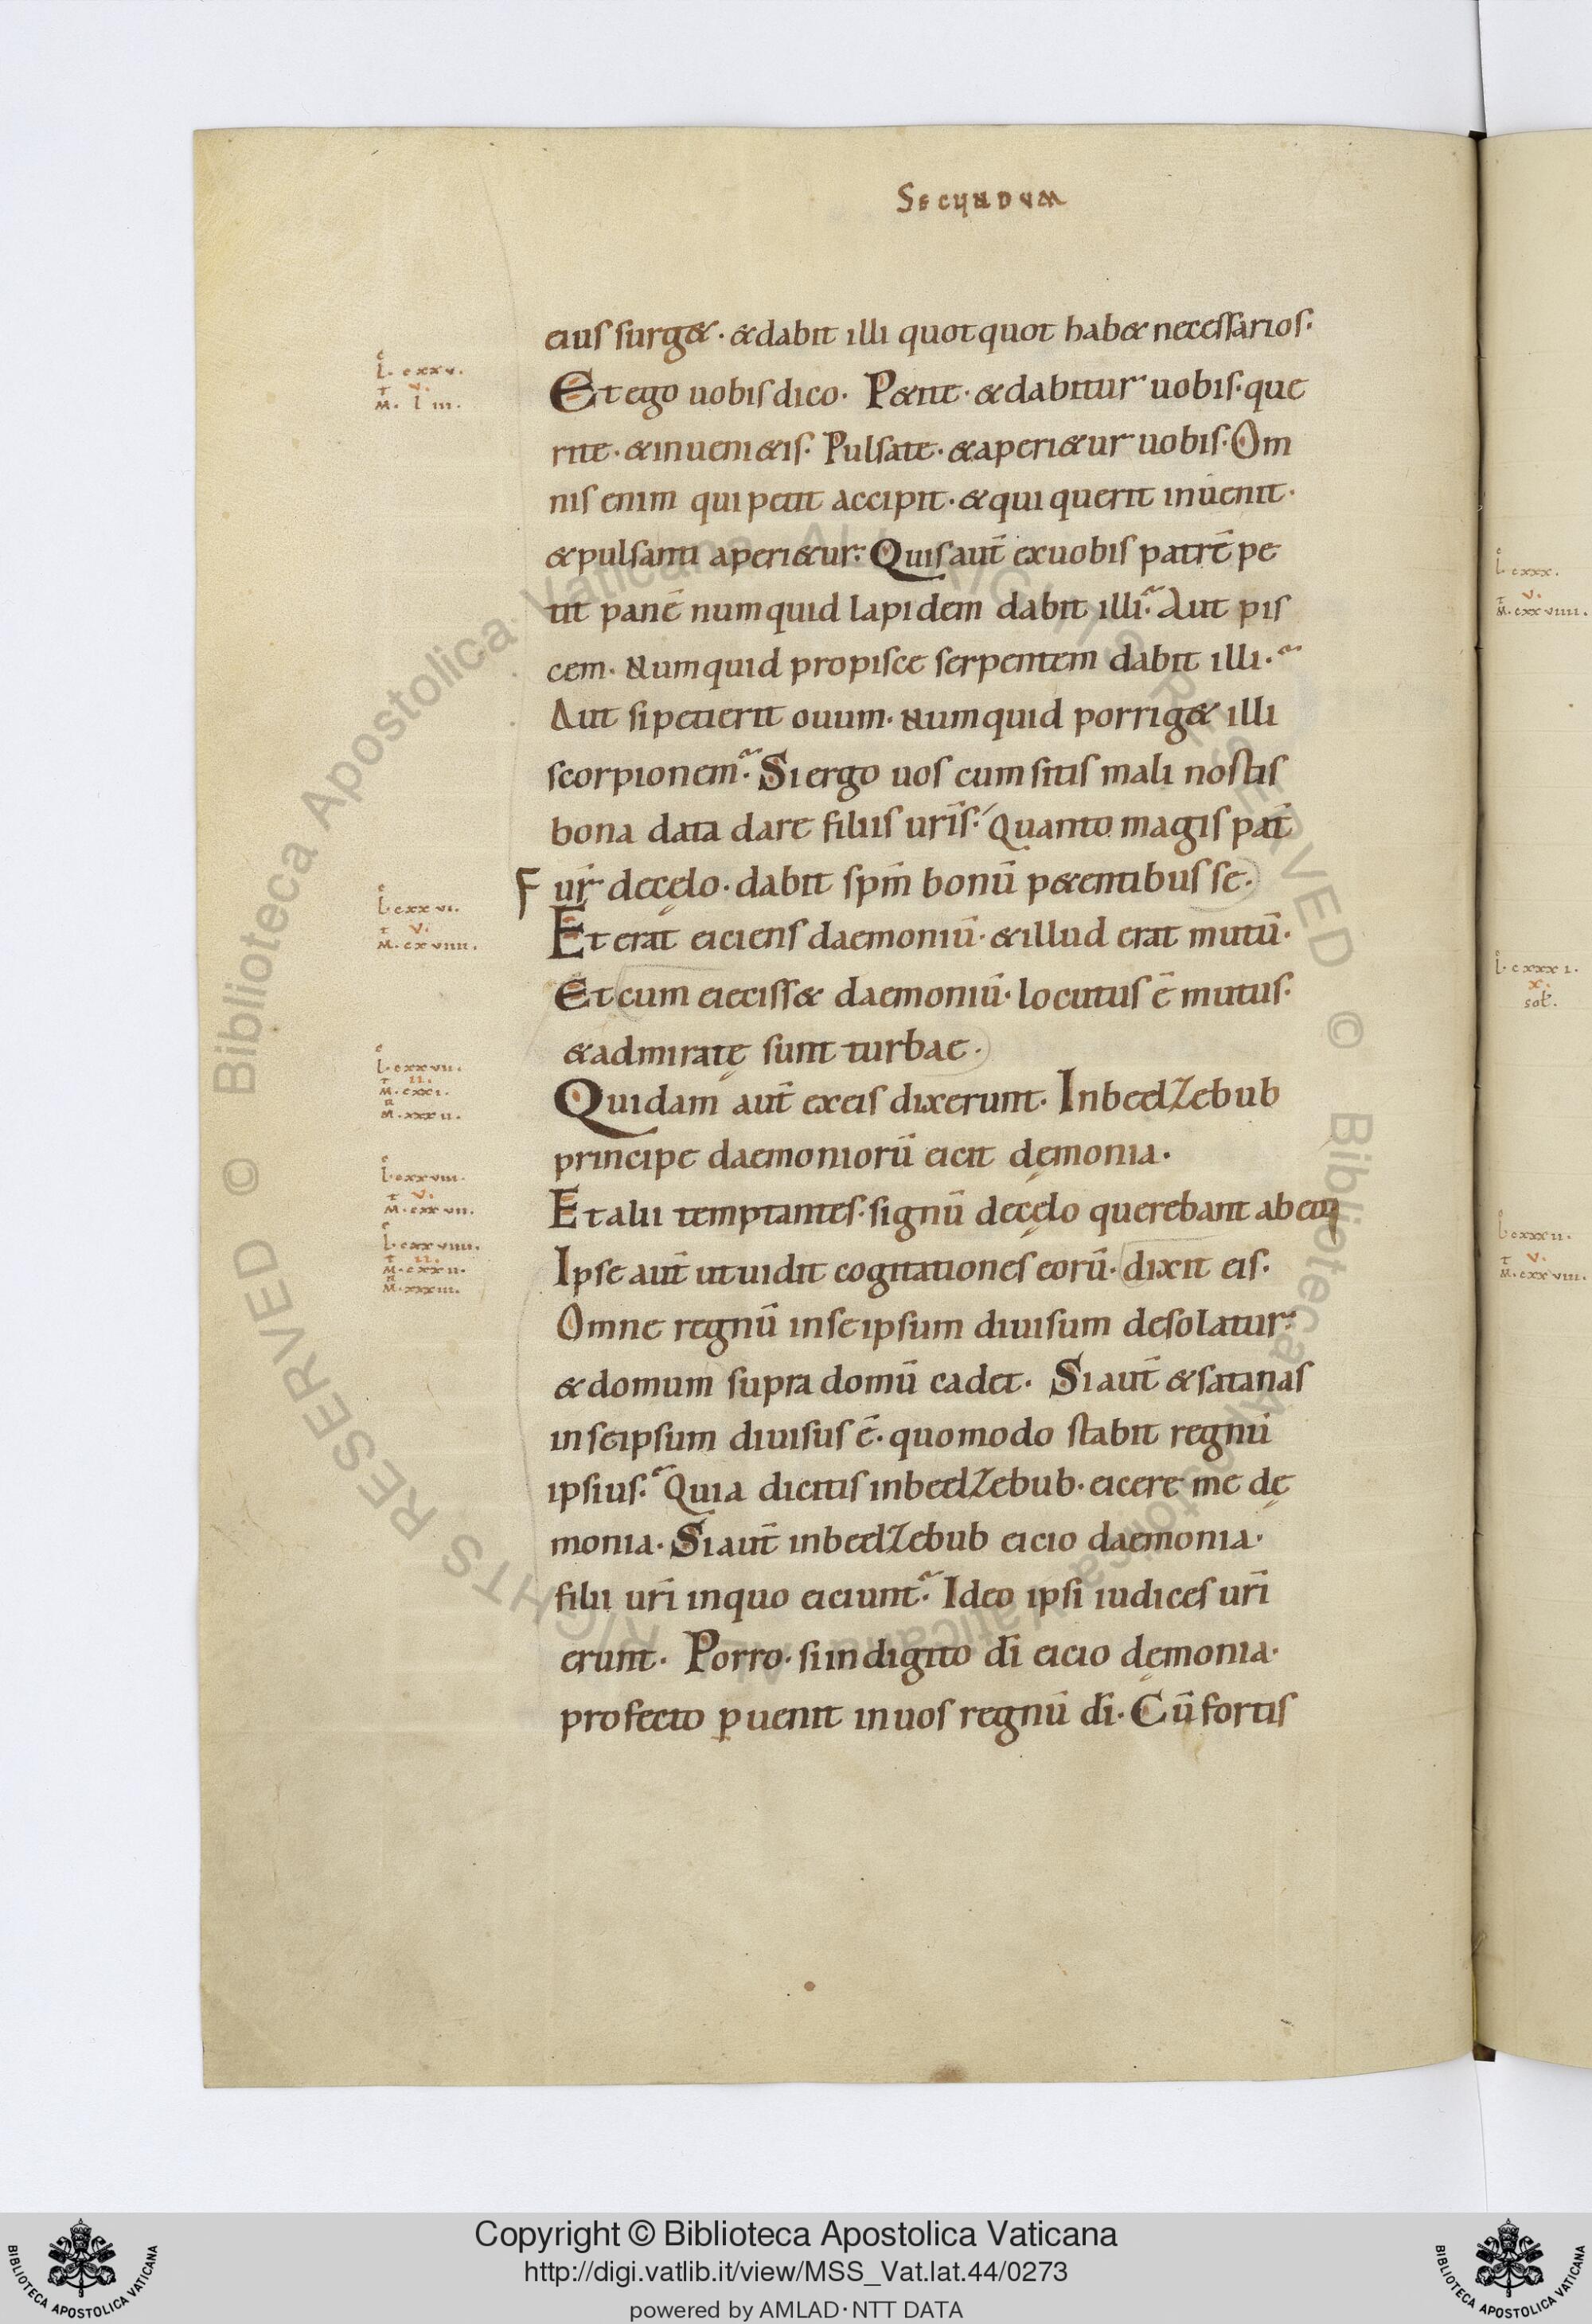 Secundum
eius surg&. & dabit illi quotquot hab& necessarios.
Et ego uobis dico. P&ite. & dabitur uobis. que
rite. & inueni&is. Pulsate. & aperi&ur uobis. Om
nis enim qui petit accipit. & qui querit inuenit.
& pulsanti aperi&ur. Quis aut̄ ex uobis patrē pe
tit panē numquid lapidem dabit illi? Aut pis
cem. Numquid pro pisce serpentem dabit illi?
Aut si petierit ouum. Numquid porrig& illi
scorpionem? Si ergo uos cum sitis mali nostis
bona data dare filiis ur̄is. Quanto magis pat̄
F ur̄ de cęlo. dabit sp̄m bonū p&entibus se.
Et erat eiciens daemoniū. & illud erat mutū.
Et cum eieciss& daemoniū. locutus ē mutus.
& admiratę sunt turbae.
Quidam aut̄ ex eis dixerunt. In beelzebub
principe daemoniorū eicit dęmonia.
Et alii temptantes. signū de cęlo querebant ab eo
Ipse aut̄ ut uidit cogitationes eorū. dixit eis.
Omne regnū in se ipsum diuisum desolatur.
& domum supra domū cadet. Si aut̄ & satanas
in seipsum diuisus ē. quomodo stabit regnū
ipsius? Quia dicitis in beelzebub. eicere me dę
monia. Si aut̄ in beelzebub eicio daemonia.
filii ur̄i in quo eiciunt? Ideo ipsi iudices ur̄i
erunt. Porro. si in digito d̄i eicio dęmonia.
profecto ꝑuenit in uos regnū d̄i. Cū fortis
L. cxxv.
v.
M. l iii.
L. cxxvi.
v.
M. cxviiii.
L. cxxvii.
ii.
M. cxxi.
M. xxxii.
L. cxxviii.
v.
M. cxxvii.
L. cxxviiii.
ii.
M. cxxii.
M. xxxiii.
L. cxxx.
v.
M. cxxviiii.
L. cxxxi.
x.
sol.
L. cxxxii.
v.
M. cxxviii.
© Biblioteca Apostolica Vaticana ALL RIGHTS RESERVED
© Biblioteca Apostolica Vaticana ALL RIGHTS RESERVED
Copyright © Biblioteca Apostolica Vaticana
http://digi.vatlib.it/view/MSS_Vat.lat.44/0273
powered by AMLAD·NTT DATA
BIBLIOTECA APOSTOLICA VATICANA
BIBLIOTECA APOSTOLICA VATICANA